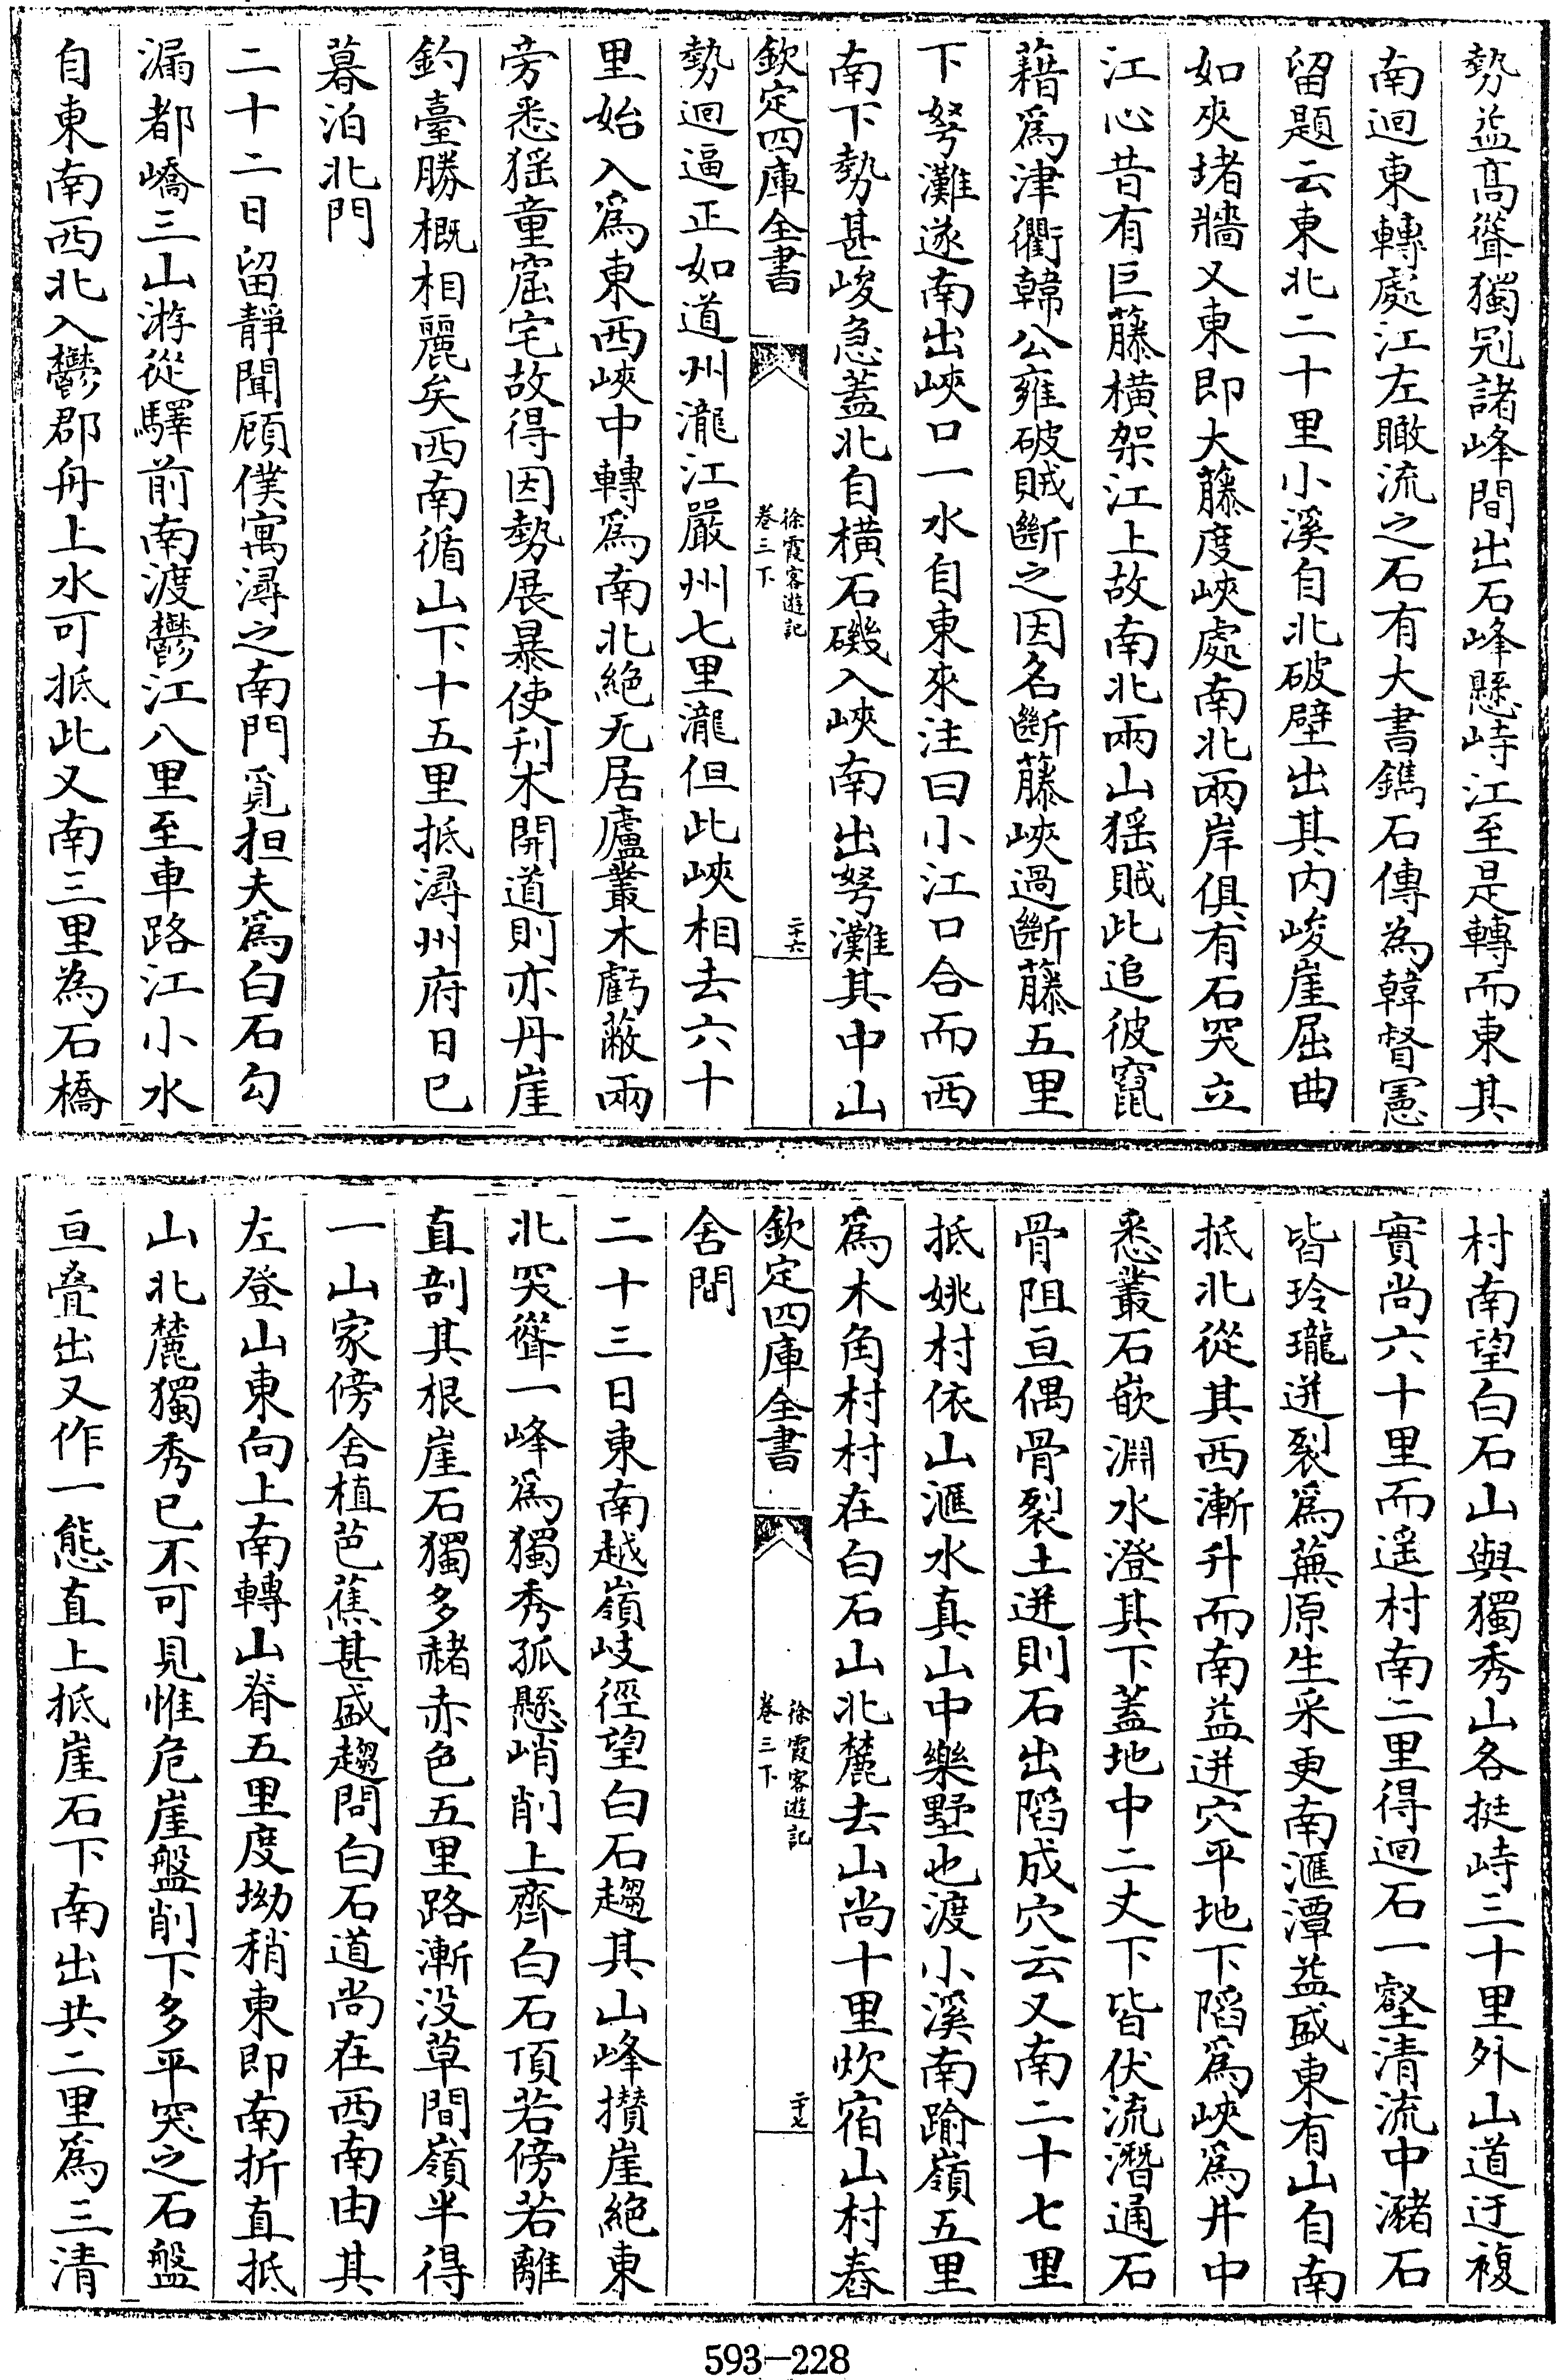 勢益高聳獨冠諸峰間出石峰懸峙江至是轉而東其
南迴東轉處江左瞰流之石有大書鐫石傳為韓督憲
留題云東北二十里小溪自北破壁出其内峻崖屈曲
如夾堵牆又東即大藤度峽處南北兩岸俱有石突立
江心昔有巨藤横架江上故南北兩山猺賊此追彼竄
藉爲津衢韓公雍破賊斷之因名斷藤峽過斷藤五里
下弩灘遂南出峽口一水自東來注曰小江口合而西
南下勢甚峻急蓋北自横石磯入峽南出弩灘其中山
欽定四庫全書
徐霞客遊記
卷三下
二十六
勢迴逼正如道州瀧江嚴州七里瀧但此峽相去六十
里始入爲東西峽中轉爲南北絶无居廬叢木虧蔽兩
旁悉猺童窟宅故得因勢展暴使刋木開道則亦丹崖
釣臺勝概相麗矣西南循山下十五里抵潯州府日已
暮泊北門
二十二日留靜聞顧僕寓潯之南門覓担夫爲白石勾
漏都嶠三山游從驛前南渡鬱江八里至車路江小水
自東南西北入鬱郡舟上水可抵此又南三里為石橋
村南望白石山與獨秀山各挺峙三十里外山道迂複
實尚六十里而遥村南二里得迴石一壑清流中瀦石
皆玲瓏迸裂爲蕪原生采更南滙潭益盛東有山自南
抵北從其西漸升而南益迸穴平地下陷爲峽爲井中
悉叢石嵌淵水澄其下蓋地中二丈下皆伏流潛通石
骨阻亘偶骨裂土迸則石出陷成穴云又南二十七里
抵姚村依山滙水真山中樂墅也渡小溪南踰嶺五里
爲木角村村在白石山北麓去山尚十里炊宿山村舂
欽定四庫全書
徐霞客遊記
卷三下
二十七
舍間
二十三日東南越嶺岐徑望白石趨其山峰攅崖絶東
北突聳一峰爲獨秀孤懸峭削上齊白石頂若傍若離
直剖其根崖石獨多赭赤色五里路漸没草間嶺半得
一山家傍舍植芭蕉甚盛趨問白石道尚在西南由其
左登山東向上南轉山脊五里度坳稍東即南折直抵
山北麓獨秀已不可見惟危崖盤削下多平突之石盤
亘疊出又作一態直上抵崖石下南出共二里爲三清
593—228